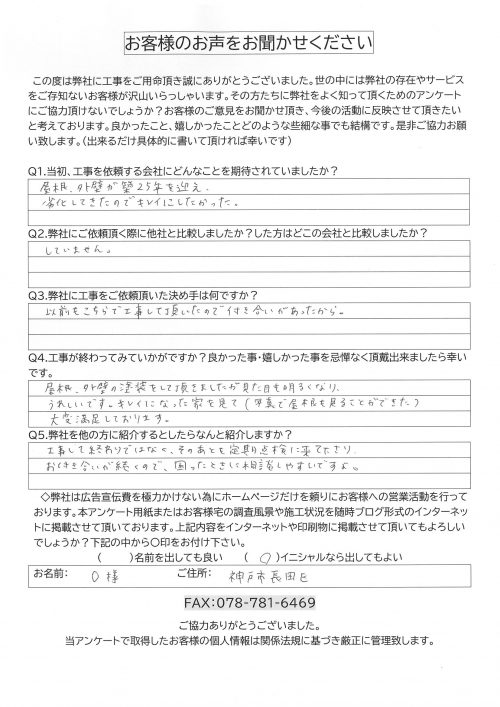 お客様のお声をお聞かせください
この度は弊社に工事をご用命頂き誠にありがとうございました。世の中には弊社の存在やサービス
をご存知ないお客様が沢山いらっしゃいます。その方たちに弊社をよく知って頂くためのアンケート
にご協力頂けないでしょうか？お客様のご意見をお聞かせ頂き、今後の活動に反映させて頂きたい
と考えております。良かったこと、嬉しかったことどのような些細な事でも結構です。是非ご協力お願
い致します。（出来るだけ具体的に書いて頂ければ幸いです）
Q1.当初、工事を依頼する会社にどんなことを期待されていましたか？
屋根、外壁が築25年を迎え、
劣化してきたのでキレイにしたかった。
Q2.弊社にご依頼頂く際に他社と比較しましたか？した方はどこの会社と比較しましたか？
していません。
Q3.弊社に工事をご依頼頂いた決め手は何ですか？
以前もこちらで工事して頂いたので付き合いがあったから。
Q4.工事が終わってみていかがですか？良かった事・嬉しかった事を忌憚なく頂戴出来ましたら幸い
です。
屋根、外壁の塗装をして頂きましたが見た目も明るくなり、
うれしいです。キレイになった家を見て（写真で屋根も見ることができた）
大変満足しております。
Q5.弊社を他の方に紹介するとしたらなんと紹介しますか？
工事して終わりではなく、そのあとも定期点検に来て下さり、
お付き合いが続くので、困ったときに相談しやすいですよ。
◇弊社は広告宣伝費を極力かけない為にホームページだけを頼りにお客様への営業活動を行って
おります。本アンケート用紙またはお客様宅の調査風景や施工状況を随時ブログ形式のインターネッ
トに掲載させて頂いております。上記内容をインターネットや印刷物に掲載させて頂いてもよろしい
でしょうか？下記の中から〇印をお付け下さい。
（　　）名前を出しても良い　（ 〇 ）イニシャルなら出してもよい
お名前：　O 様　ご住所：　神戸市長田区
FAX:078-781-6469
ご協力ありがとうございました。
当アンケートで取得したお客様の個人情報は関係法規に基づき厳正に管理致します。